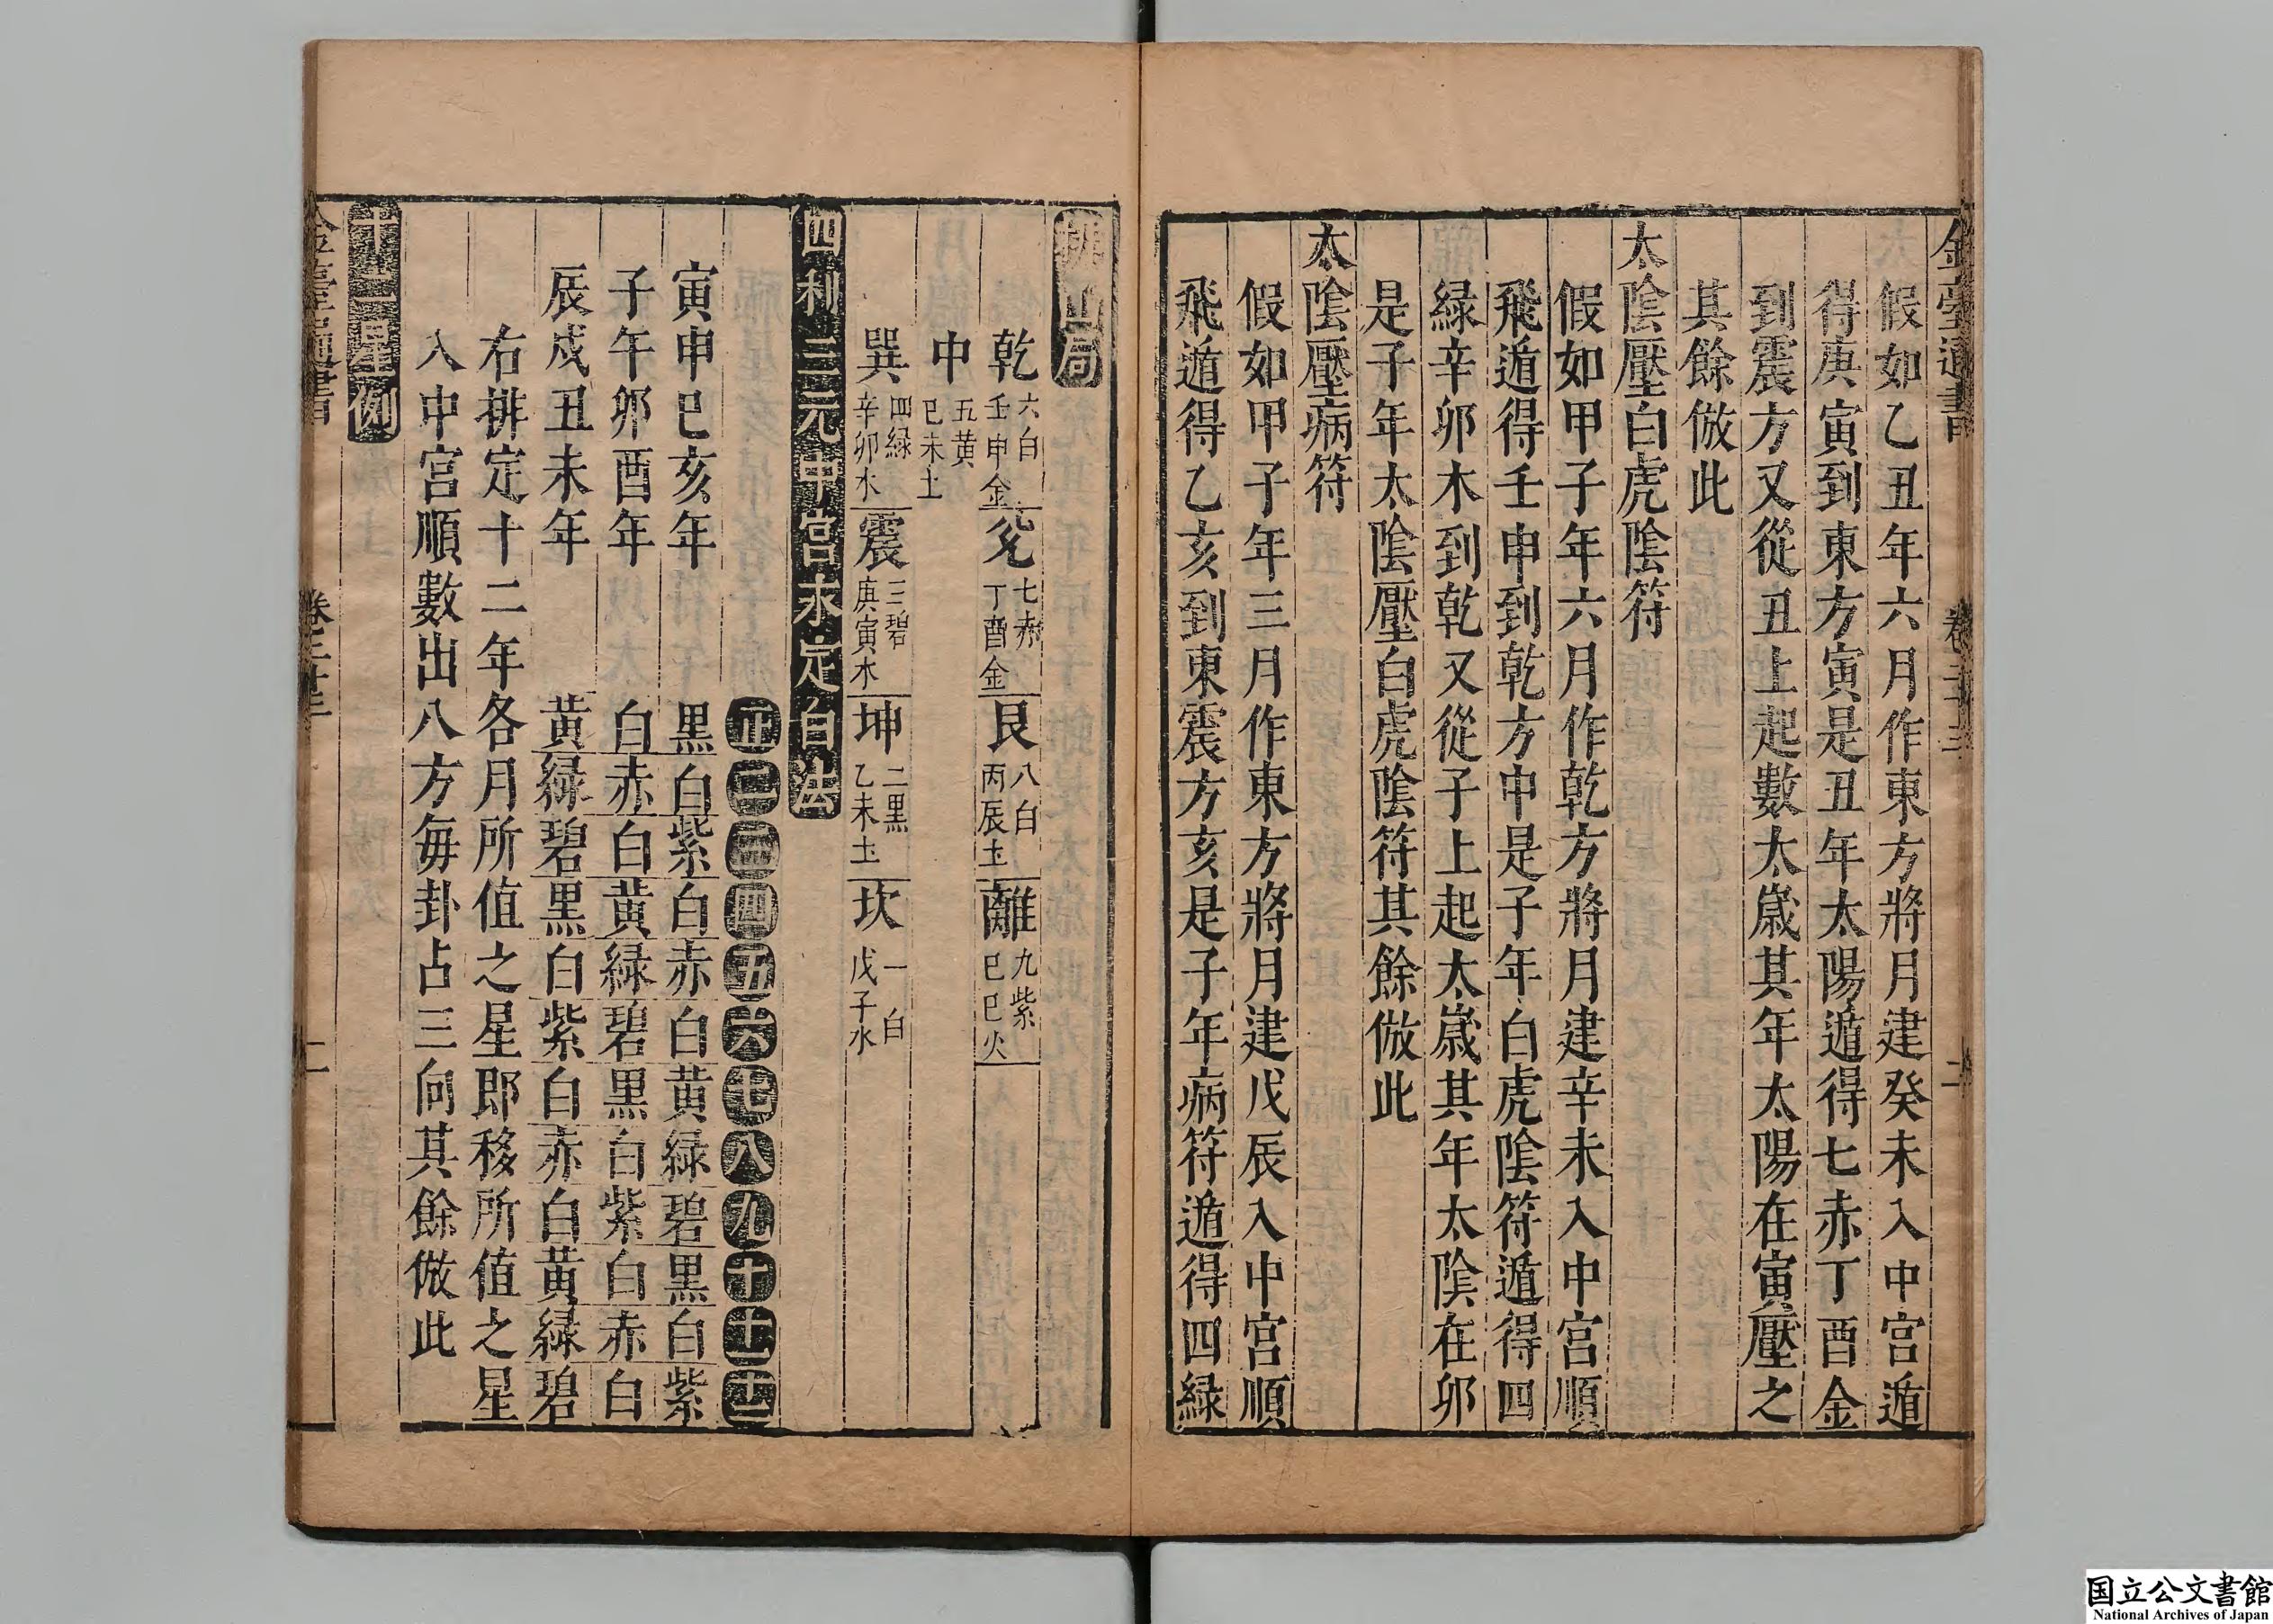 假如乙丑年六月作東方將月建癸未入中宮遁
得庚寅到東方寅是丑年太陽遁得七赤丁酉金
到震方又從丑上起數太歲其年太陽在寅壓之
其餘倣此
太陰壓白虎陰符
假如甲子年六月作乾方將月建辛未入中宮順
飛遁得壬申到乾方申是子年白虎陰符遁得四
緑辛卯木到乾又從子上起太歲其年太陰在卯
是子年太陰壓白虎陰符其餘倣此
太陰壓病符
假如甲子年三月作東方將月建戊辰入中宮順
飛遁得乙亥到東震方亥是子年病符遁得四緑
局
乾 六白 壬申金 兊 七赤 丁酉金 艮 八白 丙辰土 離 九紫 巳巳火
中 五黄 巳未土
巽 四緑 辛卯木 震 三碧 庚寅木 坤 二黒 乙未土 坎 一白 戊子水
四利三元中宮永定白法
正 二 三 四 五 六 七 八 九 十 十一 十二
寅申巳亥年 黒 白 紫 白 赤 白 黄 緑 碧 黒 白 紫
子午卯酉年 白 赤 白 黄 緑 碧 黒 白 紫 白 赤 白
辰戍丑未年 黄 緑 碧 黒 白 紫 白 赤 白 黄 緑 碧
右排定十二年各月所值之星即移所值之星
入中宮順數出八方毎卦占三向其餘倣此
十二星例
国立公文書館
National Archives of Japan